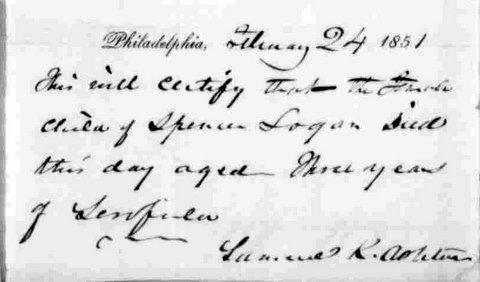 Philadelphia, February 24 1851
This will certify that the Female
child of Spencer Logan Died
this day aged Three years
of Scrofula
Samuel K. Ashton